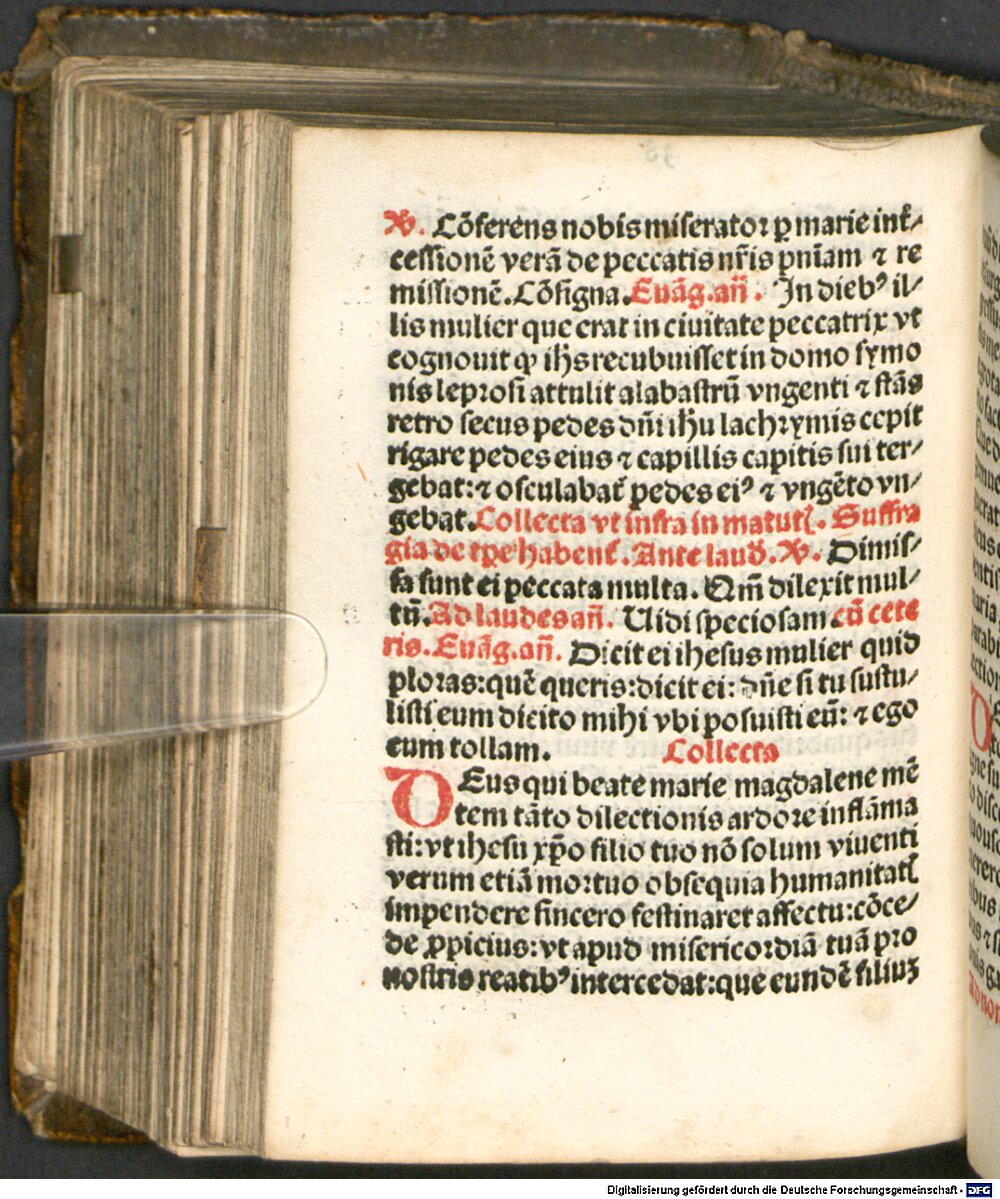 ℣. Cōferens nobis miserator ꝑ marie int̄-
cessionē verā de peccatis nr̄is pn̄iam ⁊ re
missionē. Cōsigna. Euāg. an̄. In dieb⁹ il-
lis mulier que erat in ciuitate peccatrix vt
cognouit ꝙ ih̄s recubuisset in domo symo
nis leprosi attulit alabastrū vngenti ⁊ stās
retro secus pedes dn̄i ih̄u lachrymis cepit
rigare pedes eius ⁊ capillis capitis sui ter-
gebat: ⁊ osculabat᷑ pedes ei⁹ ⁊ vngēto vn-
gebat. Collecta vt infra in matutꝭ. Suffra
gia de tꝑe habent᷑. Ante laud̄. ℣. Dimis-
sa sunt ei peccata multa. Qm̄ dilexit mul-
tū. Ad laudes an̄. Uidi speciosam. cū cete
ris. Euāg. an̄. Dicit ei ihesus mulier quid
ploras: quē queris: dicit ei: dn̄e si tu sustu-
listi eum dicito mihi vbi posuisti eū: ⁊ ego
eum tollam. Collecta
DEus qui beate marie magdalene mē
tem tāto dilectionis ardore inflāma
sti: vt ihesu xp̄o filio tuo nō solum viuenti
verum etiā mortuo obsequia humanitatꝭ
impendere sincero festinaret affectu: cōce-
de ꝓpicius: vt apud misericordiā tuā pro
nostris reatib⁹ intercedat: que eundē filiuꝫ
Digitalisierung gefördert durch die Deutsche Forschungsgemeinschaft - DFG